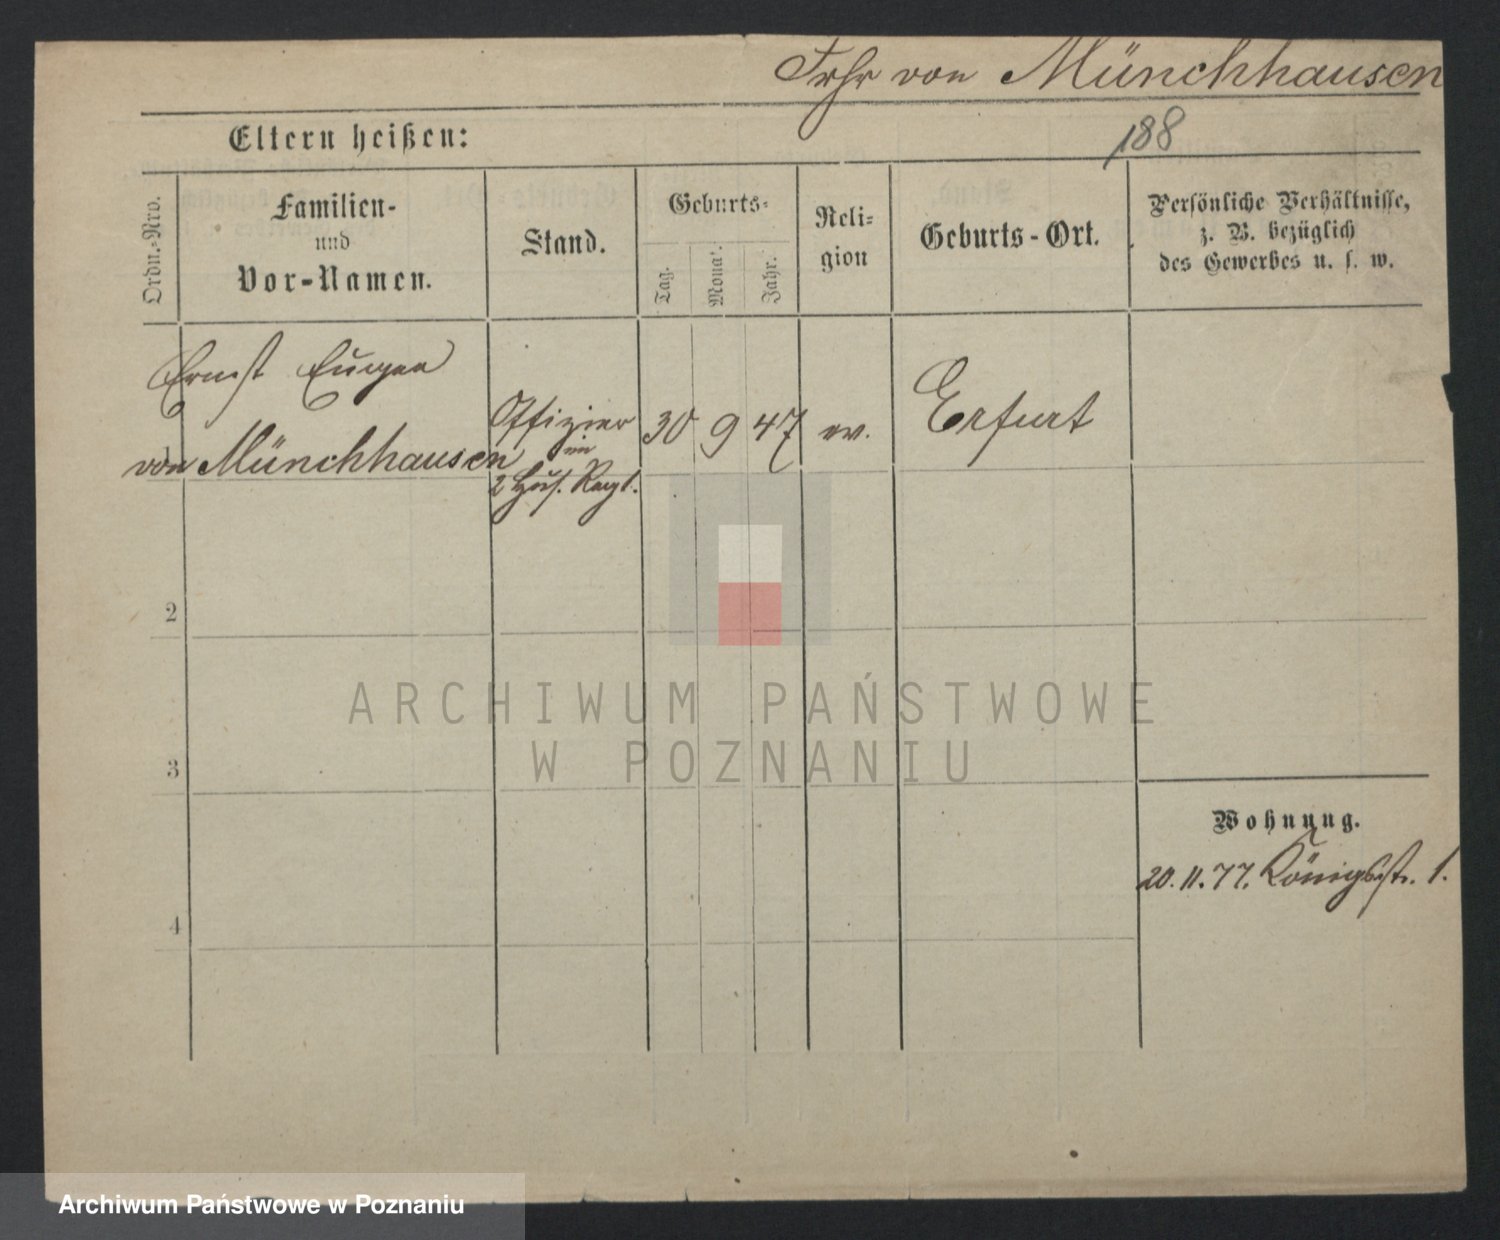 Frhr von Münchhausen
188
Eltern heißen:
Ordn.-Nro.
Familien-
und
Vor-Namen.
Stand.
Geburts-
Tag.
Mona.
Jahr.
Reli-
gion
Geburts-Ort.
Persönliche Verhältnisse,
z. B. bezüglich
des Gewerbes u. s. w.
Ernst Eugen
1 von Münchhausen
Offizier
im
2 Hus. Regt.
30 9 47 ev. Erfurt
2
3
4
Wohnung.
20.11.77. Königsstr. 1.
ARCHIWUM PAŃSTWOWE
W POZNANIU
Archiwum Państwowe w Poznaniu